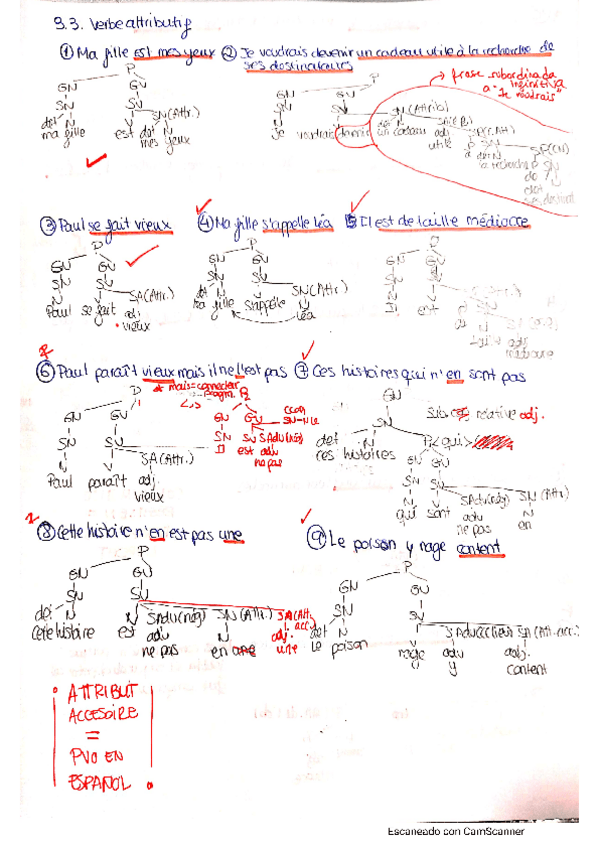 3.3. Verbe attributif
① Ma fille est mes yeux ② Je voudrais devenir un cadeau utile à la recherche de
ses destinataires
→ frase subordinada
infinitiva
a "Je voudrais"
P
GN GV
SN SV
det N SN(Attr.)
ma fille est det N
mes yeux
P
GN GV
SN SV
N SN(Attrib.)
Je voudrais un cadeau adj
utile
la recherche
de
det
③ Paul se fait vieux ④ Ma fille s'appelle Léa ⑤ Il est de taille médiocre
P
GN GV
SN SV
N SA(Attr.)
Paul se fait adj
vieux
P
GN GV
SN SV
det N SN(Attr.)
ma fille s'appelle N
Léa
P
GN GV
SN SV
Il est
⑥ Paul paraît vieux mais il ne l'est pas ⑦ Ces histoires qui n'en sont pas
* mais = connecter
pragm.
P
GN GV
SN SV
N SA(Attr.)
Paul paraît adj
vieux
P2
GN GV
SN SV SAdv(nég)
Il est adv
ne pas
CCON
SN-N-le
GN
SN Sub. relative adj.
det N P<qui>
ces histoires
GN GV
SN SV
SAdv(nég) SN(Attr.)
qui sont adv N
ne pas en
⑧ Cette histoire n'en est pas une ⑨ Le poison y nage content
P
GN GV
SN SV
det N SAdv(nég) SN(Attr.) SA(Attr.
acc.)
Cette histoire est adv N adj.
ne pas en une
P
GN GV
SN SV
det N SAdv(CClieu) SA(Att. acc.)
Le poison nage adv adj.
y content
• ATTRIBUT
ACCESOIRE
=
PVO EN
ESPAÑOL •
Escaneado con CamScanner